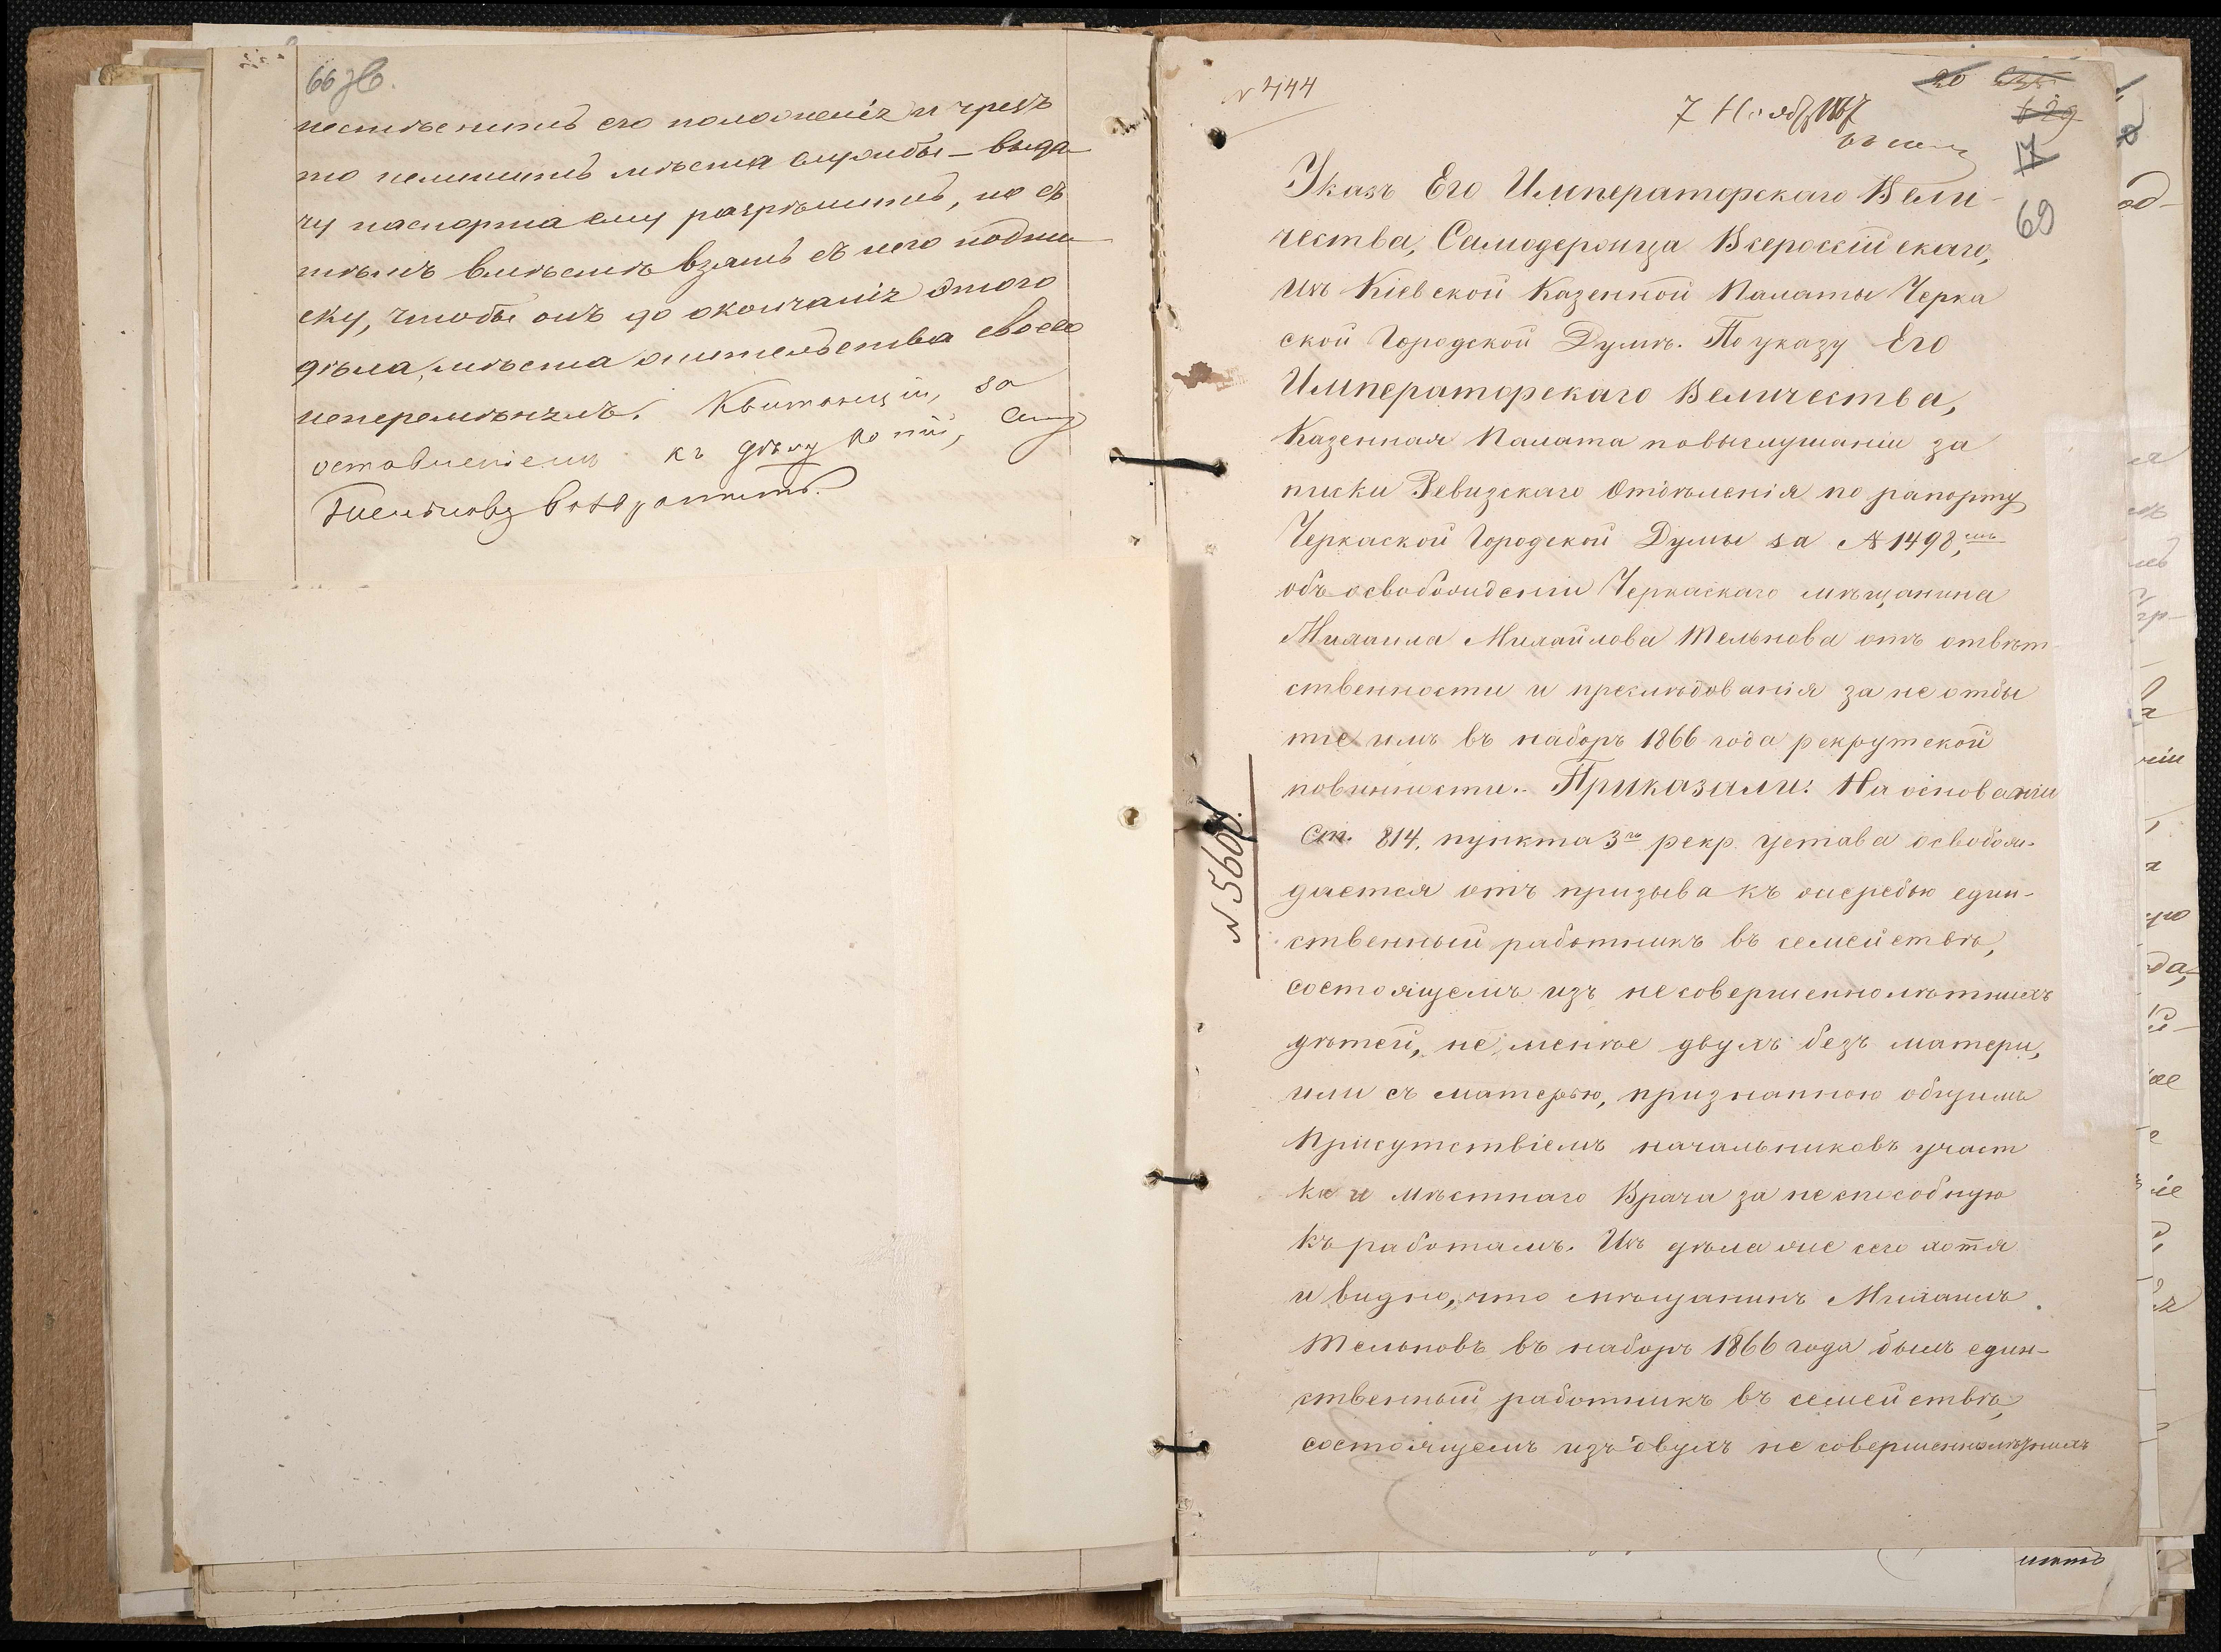 66 зв.
нестѣснить его положенія и чрезъ
то нелишить мѣста службы – выда-
чу паспорта ему разрѣшить, но съ
тѣмъ вмѣстѣ взять съ него подпи-
ску, чтобы онъ до окончанія этого
дѣла, мѣста жительства своего
неперемѣнялъ. Квитанціи, за
оставленіемъ къ дѣлу копій,
возвратить.
№ 444
20
629
7 Ноября 1867
17
69
Указъ Его Императорскаго Вели-
чества, Самодержца Всероссійскаго,
Изъ Кіевской Казенной Палаты Черка
ской Городской Думѣ. По указу Его
Императорскаго Величества,
Казенная Палата повыслушаніи за
писки Ревизскаго Отдѣленія по рапорту
Черкаской Городской Думы за № 1498,
объ освобожденіи Черкаскаго мѣщанина
Михаила Михайлова Тельнова отъ отвѣт-
ственности и преслѣдованія за не отбы
тіе имъ въ наборъ 1866 года рекрутской
повинности. Приказали: На основаніи
Ст. 814, пункта 3го рекр. устава освобож-
дается отъ призыва къ очередью един-
ственный работникъ въ семействѣ,
состоящемъ изъ несовершеннолѣтнихъ
дѣтей, не менѣе двухъ безъ матери,
или съ матерью, признанною общимъ
Присутствіемъ начальниковъ участ
ка и мѣстнаго Врача за неспособную
къ работамъ. Изъ дѣла же сего хотя
и видно, что мѣщанинъ Михаилъ
Тельновъ въ наборъ 1866 года былъ един-
ственный работникъ въ семействѣ,
состоящемъ изъ двухъ не совершеннолѣтнихъ
№ 5660.